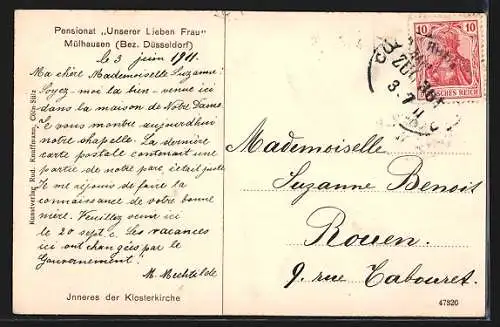 Pensionat „Unserer Lieben Frau"
Mülhausen (Bez. Düsseldorf)
le 3 juin 1911.
Ma chère Mademoiselle Suzanne!
Soyez-moi la bien-venue ici
dans la maison de Nôtre Dame.
Je vous montre aujourdhui
notre chapelle. La dernière
carte postale contenant une
partie de notre parc, était juste
Je me réjouis de faire la
connaissance de votre bonne
mère. Veuillez venir ici
le 20 sept. Les vacances
ici ont changées par le
Gouvernement!
M. Mechtilde
Jnneres der Klosterkirche
Kunstverlag Rud. Kauffmann, Cöln-Sülz
10 10
DEUTSCHES REICH
ZUG
3 7 11
Mademoiselle
Suzanne Benoit
Rouen.
9. rue Tabouret.
47820